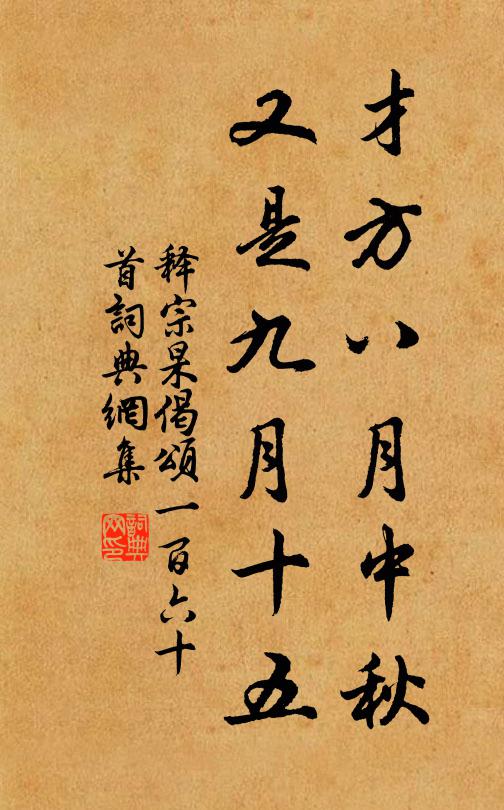 才方八月中秋
又是九月十五
释宗杲偈颂一百六十
首詞典網集
詞典
网印